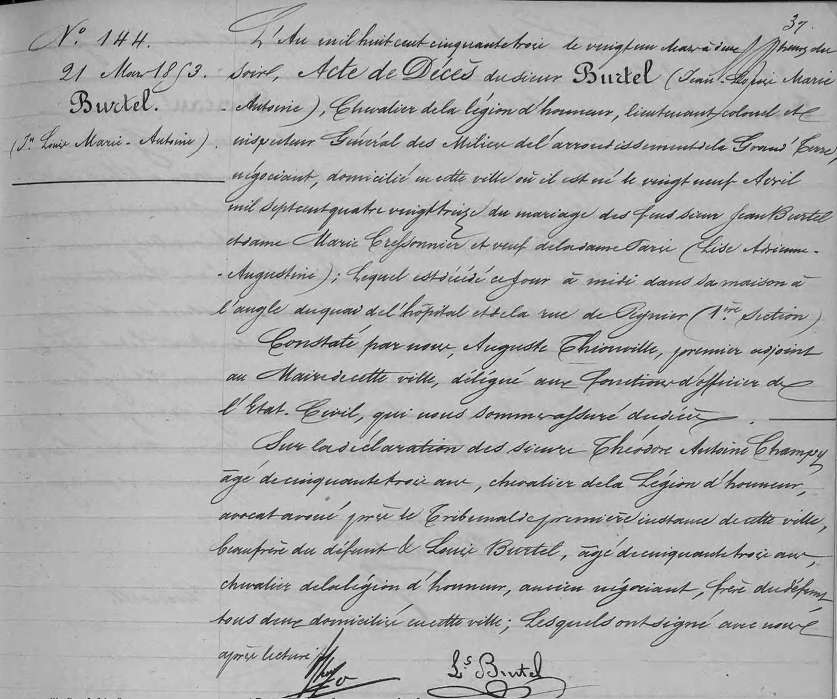 37
N.° 144.
21 Mars 1853.
Burtel.
(J.n Louis Marie-Antoine).
L'An mil huit cent cinquante trois le vingt un Mars à heures du
soir, Acte de Décès du sieur Burtel (Jean-Louis Marie
Antoine), Chevalier de la légion d'honneur, lieutenant colonel et
inspecteur Général des Milices de l'arrondissement de la Grand' Terre,
négociant, domicilié en cette ville où il est né le vingt neuf Avril
mil sept cent quatre vingt treize du mariage des feus sieur Jean Burtel
et dame Marie Cressonnier et veuf de la dame Parie (Lise Adrienne-
Augustine); Lequel est décédé ce jour à midi dans sa maison à
l'angle du quai de l'hôpital et de la rue de (1.ère Section)
Constaté par nous, Auguste Thionville, premier adjoint
au Maire de cette ville, délégué aux fonctions d'officier de
l'Etat-Civil, qui nous sommes assuré du décès.
Sur la déclaration des sieurs Théodore Antoine Champy
âgé de cinquante trois ans, chevalier de la Légion d'honneur,
avocat avoué près le Tribunal de première instance de cette ville,
beaufrère du défunt & Louis Burtel, âgé de cinquante trois ans,
chevalier de la légion d'honneur, ancien négociant, frère du défunt,
tous deux domiciliés en cette ville; Lesquels ont signé avec nous
après lecture.
L.s Burtel